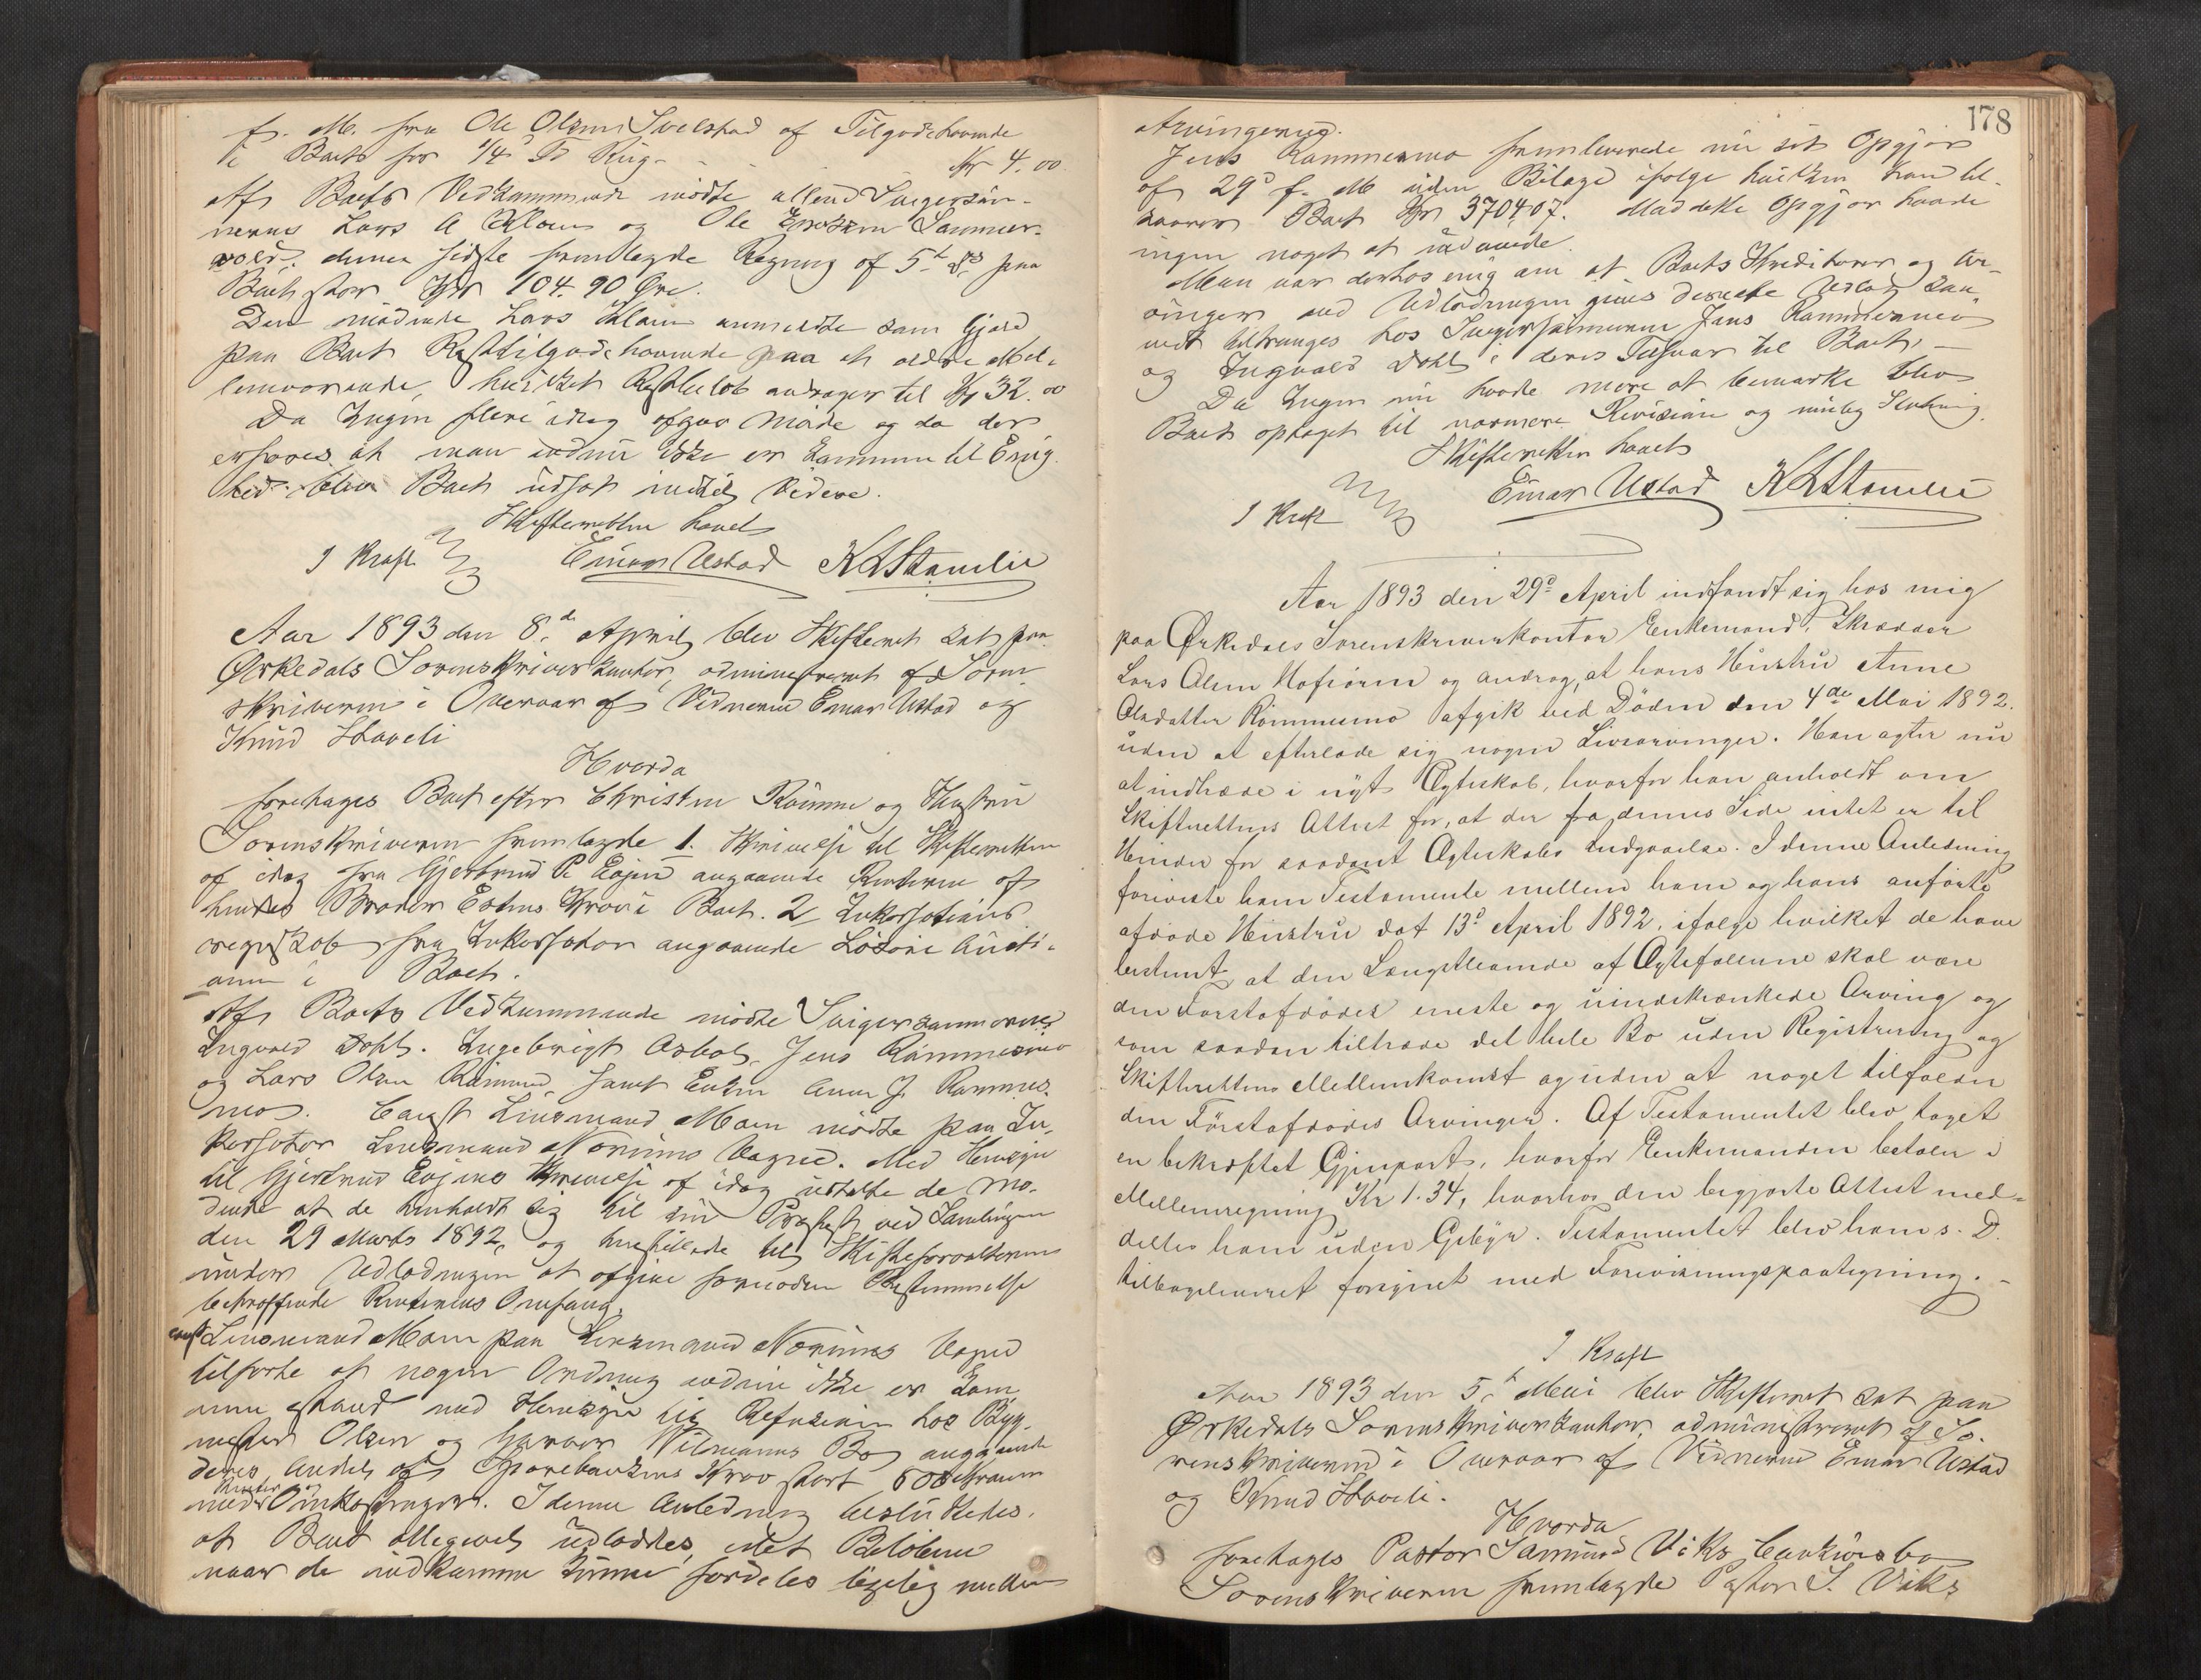 f. M. fra Ole Olsen Svelstad af Tilgodehavende
i Boet for 1/4 Td Rug - - Kr 4.00
Af Boets Vedkommende mødte alene Svigersøn-
nerne Lars A Klavn og Ole
vold. denne sidste fremlagde Regning af 5te ds paa
Boet stor Kr 104.90 Øre.
Den mødende Lars anmeldte som Gjæld
paa Boet Resttilgodehavende paa et ældre Mel-
lemværende, hvilket Restbeløb andrager til Kr 32.00
Da Ingen flere idag afgav Møde og da der
erfores at man endnu ikke er kommen til Enig-
hed blev Boet udsat indtil Videre.
Skifteretten hævet
I Kraft Einar Ustad K Stavelie
Aar 1893 den 8de April blev Skifteret sat paa
Ørkedals Sorenskriverkontor, administreret af Soren-
skriveren i Overvær af Vidnerne Einar Ustad og
Knud Staveli
Hvorda
foretages Boet efter Christen Rømme og Hustru
Sorenskriveren fremlagde 1. Skrivelse til Skifteretten
af idag fra Gjertrud P. angaaende Renterne af
hendes Broder Krav i Boet. 2 Inkassations
regnskab fra Inkassator angaaende Løsøre Aukti-
onen i Boet.
Af Boets Vedkommende mødte Svigersønnerne
Ingvald Dahl. Ingebrigt Jens Rømmesmo
og Lars Olsen samt Enken Anne J. Rømmes-
mo. Const Lensmand Moen mødte paa In-
kassator Lensmand Vegne. Med Hensyn
til Gjertrud Skrivelse af idag udtalte de Mø-
dende at de henholdt sig til sin Protest ved Samlingen
den 29 Marts 1892, og henstillede til Skifteforvalteren
under Udlodningen at afgive fornøden Bestemmelse
betræffende Renternes Omfang.
const Lensmand Moen paa Lensmand Vegne
tilførte at nogen Ordning endnu ikke er kom-
men istand med Hensyn til Refusion hos Byg-
mester Olsen og Garver Bo angaaende
deres Andel af Sparebankens Krav stort 600 Kroner
med Renter og Omkostninger. I denne Anledning besluttedes,
at Boet alligevel udloddes, idet Beløbene
naar de indkomme kunne fordeles ligelig mellem
178
Arvingerne.
Jens Rømmesmo fremleverede nu sit Opgjør
af 29de f. M uden Bilage ifølge hvilken han til-
svarer Boet Kr 3704.07. Mod dette Opgjør havde
ingen noget at indvende.
Man var derhos enig om at Boets Kreditorer og Ar-
vinger ved Udlodningen gives direkte Udlæg saa
vidt tiltrænges hos Svigersønnerne Jens Rømmesmo
og Ingvald Dahl i deres Tilsvar til Boet. -
Da Ingen nu havde mere at bemærke blev
Boet optaget til nærmere Revision og mulig Slutning.
Skifteretten hævet
I Kraft Einar Ustad K Stavelie
Aar 1893 den 29de April indfandt sig hos mig
paa Ørkedals Sorenskriverkontor Enkemand, Skrædder
Lars Olsen og androg, at hans Hustru Anne
Olsdatter Rømmesmo afgik ved Døden den 4de Mai 1892.
uden at efterlade sig nogen Livsarvinger. Han agter nu
at indtræde i nyt Ægteskab, hvorfor han anholdt om
Skifterettens Attest for, at der fra dennes Side intet er til
Hinder for saadant Ægteskabs Indgaaelse. I denne Anledning
foreviste han Testamente mellem ham og hans anførte
afdøde Hustru dat 13de April 1892, ifølge hvilket de have
bestemt, at den Længstlevende af Ægtefællerne skal være
den Førstafdødes eneste og uindskrænkede Arving og
som saadan tiltræde det hele Bo uden Registrering og
Skifterettens Mellemkomst og uden at noget tilfalder
den Førstafdødes Arvinger. Af Testamentet blev taget
en bekræftet Gjenpart, hvorfor Enkemanden betaler i
Mellemregning Kr 1.34, hvorhos den begjærte Attest med-
deltes ham uden Gebyr. Testamentet blev ham s. D.
tilbageleveret forsynet med Forevisningspaategning. -
I Kraft
Aar 1893 den 5te Mai blev Skifteret sat paa
Ørkedals Sorenskriverkontor, administreret af So-
renskriveren i Overvær af Vidnerne Einar Ustad
og Knud Staveli.
Hvorda
foretages Pastor Viks Concursbo
Sorenskriveren fremlagde Pastor S. Viks